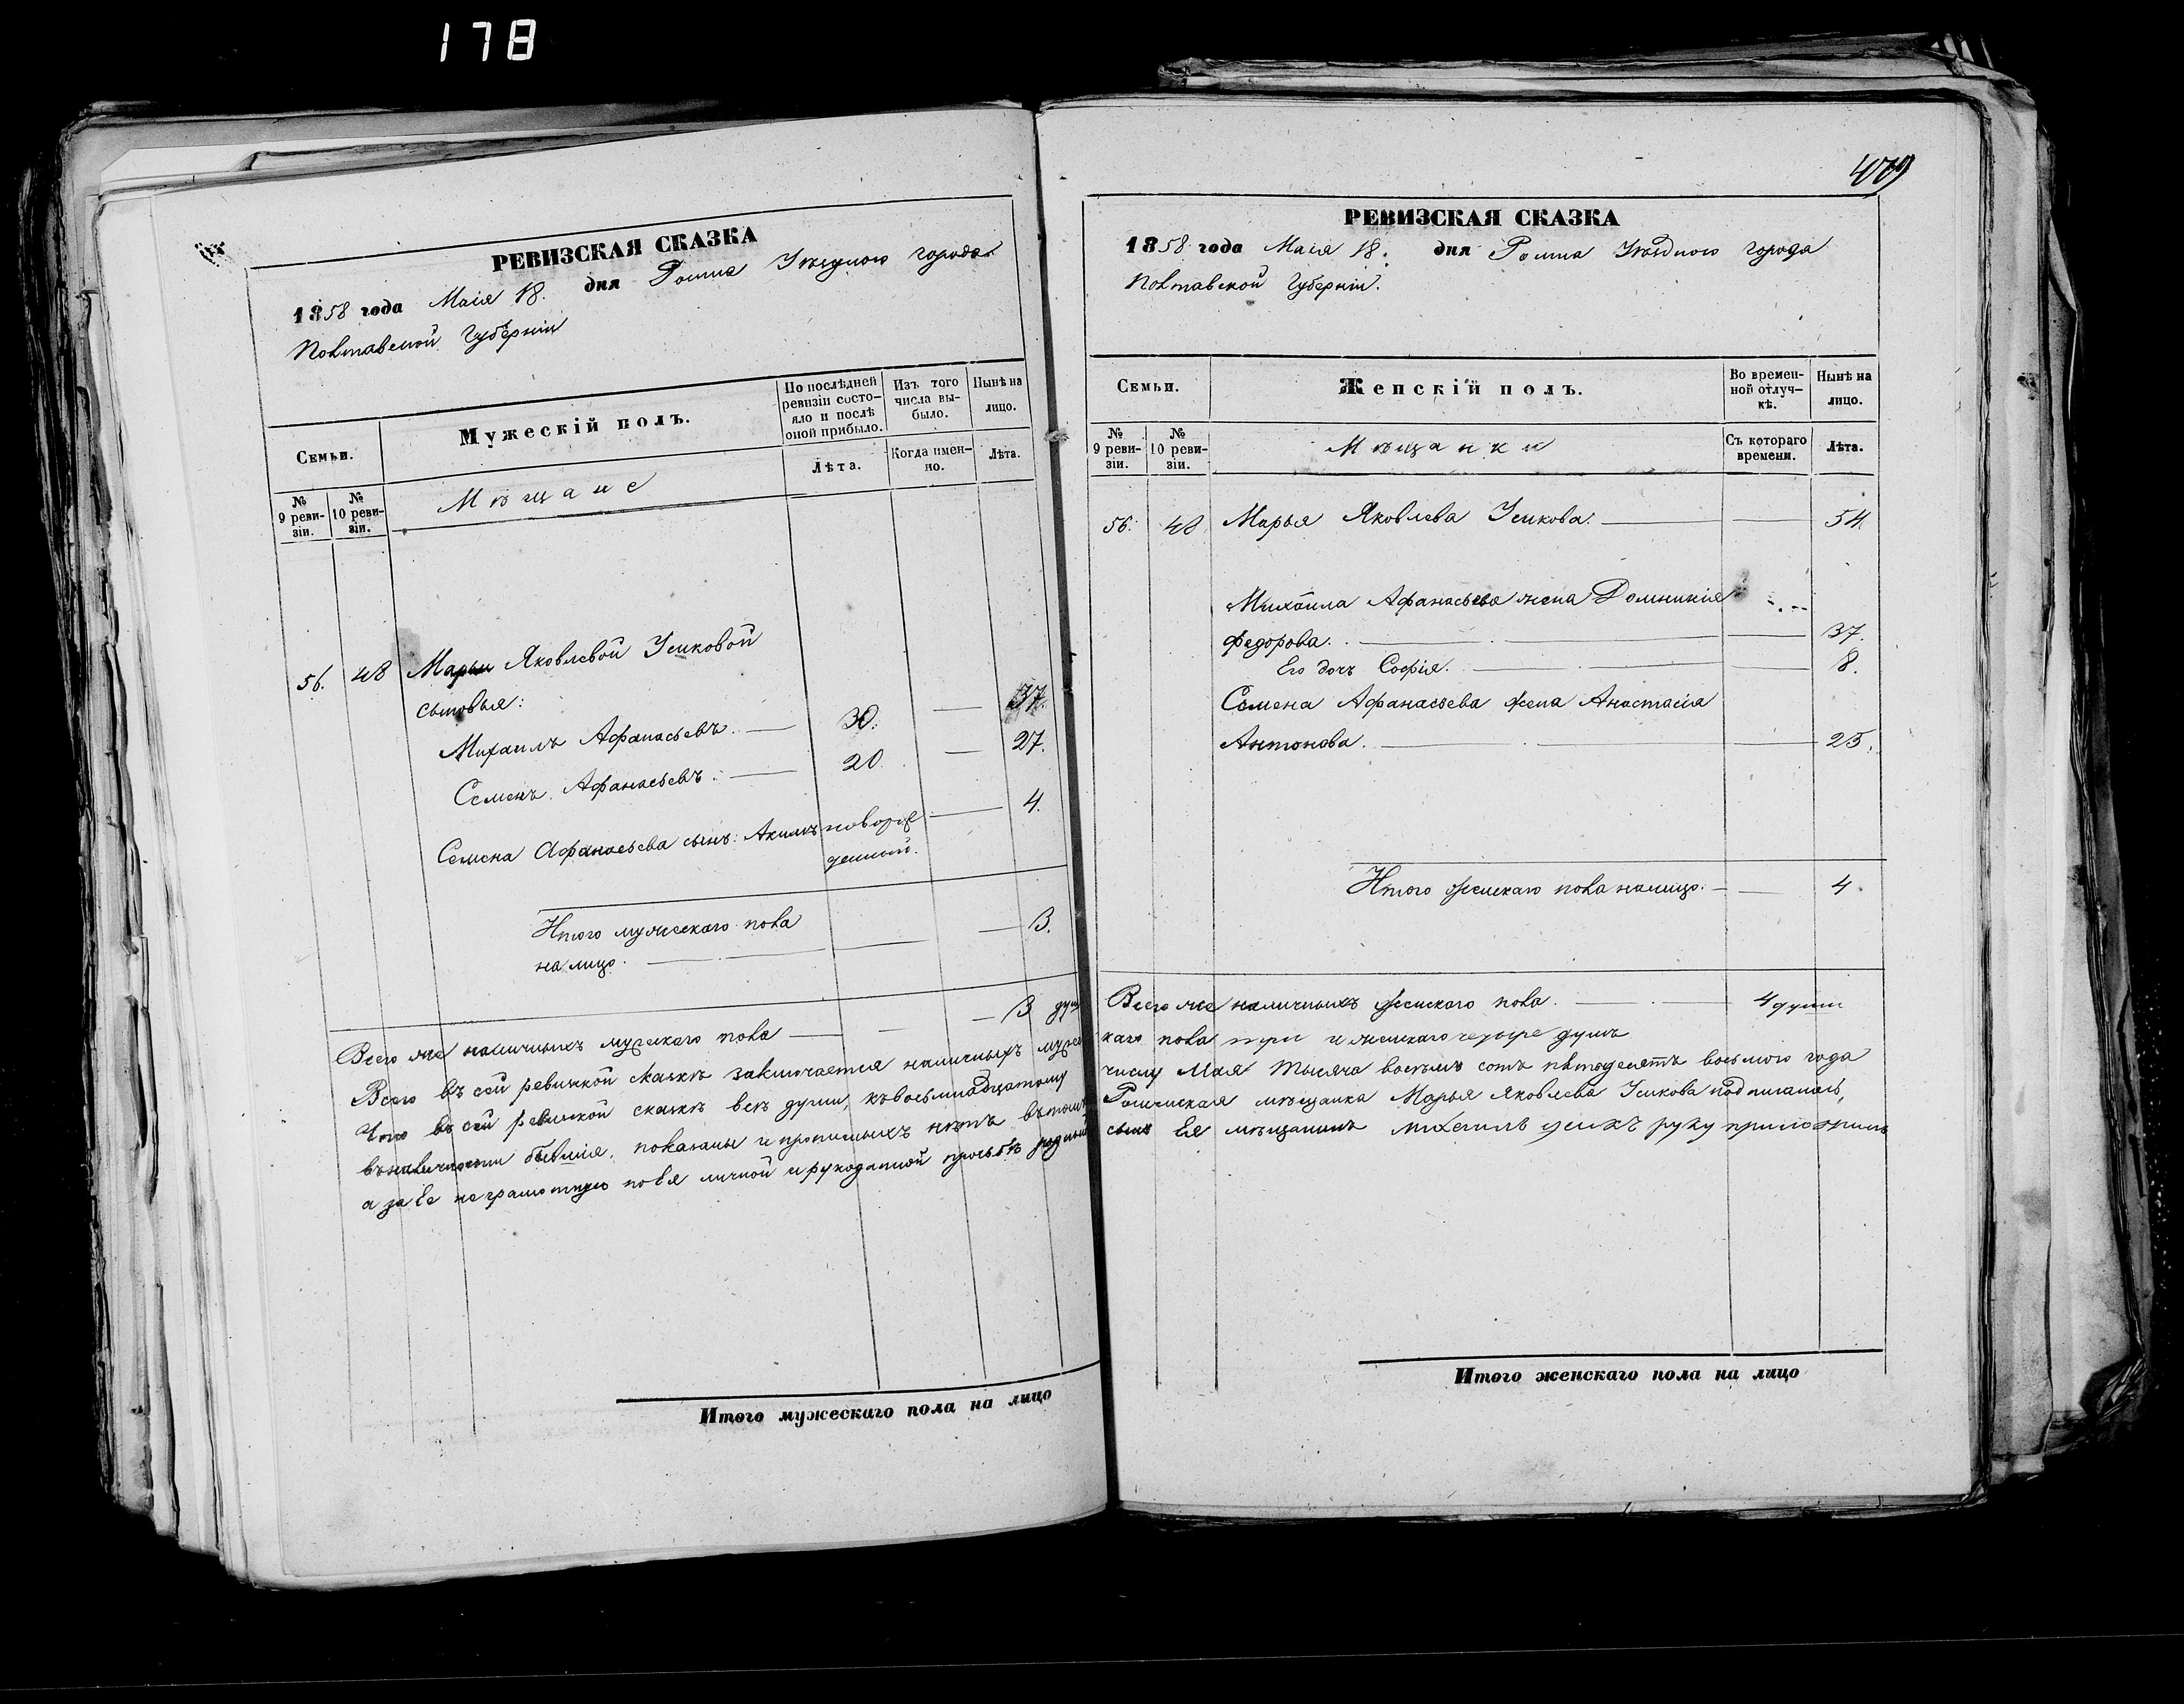 178
РЕВИЗСКАЯ СКАЗКА
1858 года Маія 18. дня Ромна Уѣзднаго города
Полтавской Губерніи
Семьи.
Мужескій полъ.
По послѣдней ревизіи состо-
яло и послѣ
оной прибыло.
Изъ того
числа вы-
было.
Нынѣ на
лицо.
№
9 реви-
зіи.
№
10 реви-
зіи.
Мѣщане
Лѣта.
Когда имен-
но.
Лѣта.
56. 48 Марьи Яковлевой Усиковой
сыновья:
Михаилъ Афанасьевъ. — 30. — 37.
Семенъ Афанасьевъ. — 20. — 27.
Семена Афанасьева сынъ: Акимъ новорж — 4.
денный.
Итого мужескаго пола
на лицо. — 3.
Всего же наличныхъ мужскаго пола — 3 душ
Всего въ сей ревизкой сказкѣ заключается наличныхъ мужес
Что въ сей ревизкой сказкѣ всѣ души, къ восьмнадцатому
въ наличности бывшія, показаны и прописныхъ нѣтъ въ томъ
а за ее неграмотную по ея личной и рукоданной прозьбѣ родный
Итого мужескаго пола на лицо
479
РЕВИЗСКАЯ СКАЗКА
1858 года Маія 18. дня Ромна Уѣзднаго города
Полтавской Губерніи.
Семьи.
Женскій полъ.
Во времен-
ной отлуч-
кѣ.
Нынѣ на
лицо.
№
9 реви-
зіи.
№
10 реви-
зіи.
Мѣщанки
Съ котораго
времени.
Лѣта.
56. 48 Марья Яковлева Усикова. — 54.
Михаила Афанасьева жена Домникія
Федорова. — 37.
Его дочь Софія. — 8.
Семена Афанасьева жена Анастасія
Антонова. — 25.
Итого женскаго пола налицо. — 4.
Всего же наличныхъ женскаго пола. — 4 души
каго пола три и женскаго четыре душъ
числу Мая тысяча восемь сотъ пятьдесятъ восьмого года
Роменская мѣщанка Марья Яковлева Усикова подписалась,
сынъ Ея мѣщанинъ Михаилъ Усикъ руку приложилъ
Итого женскаго пола на лицо